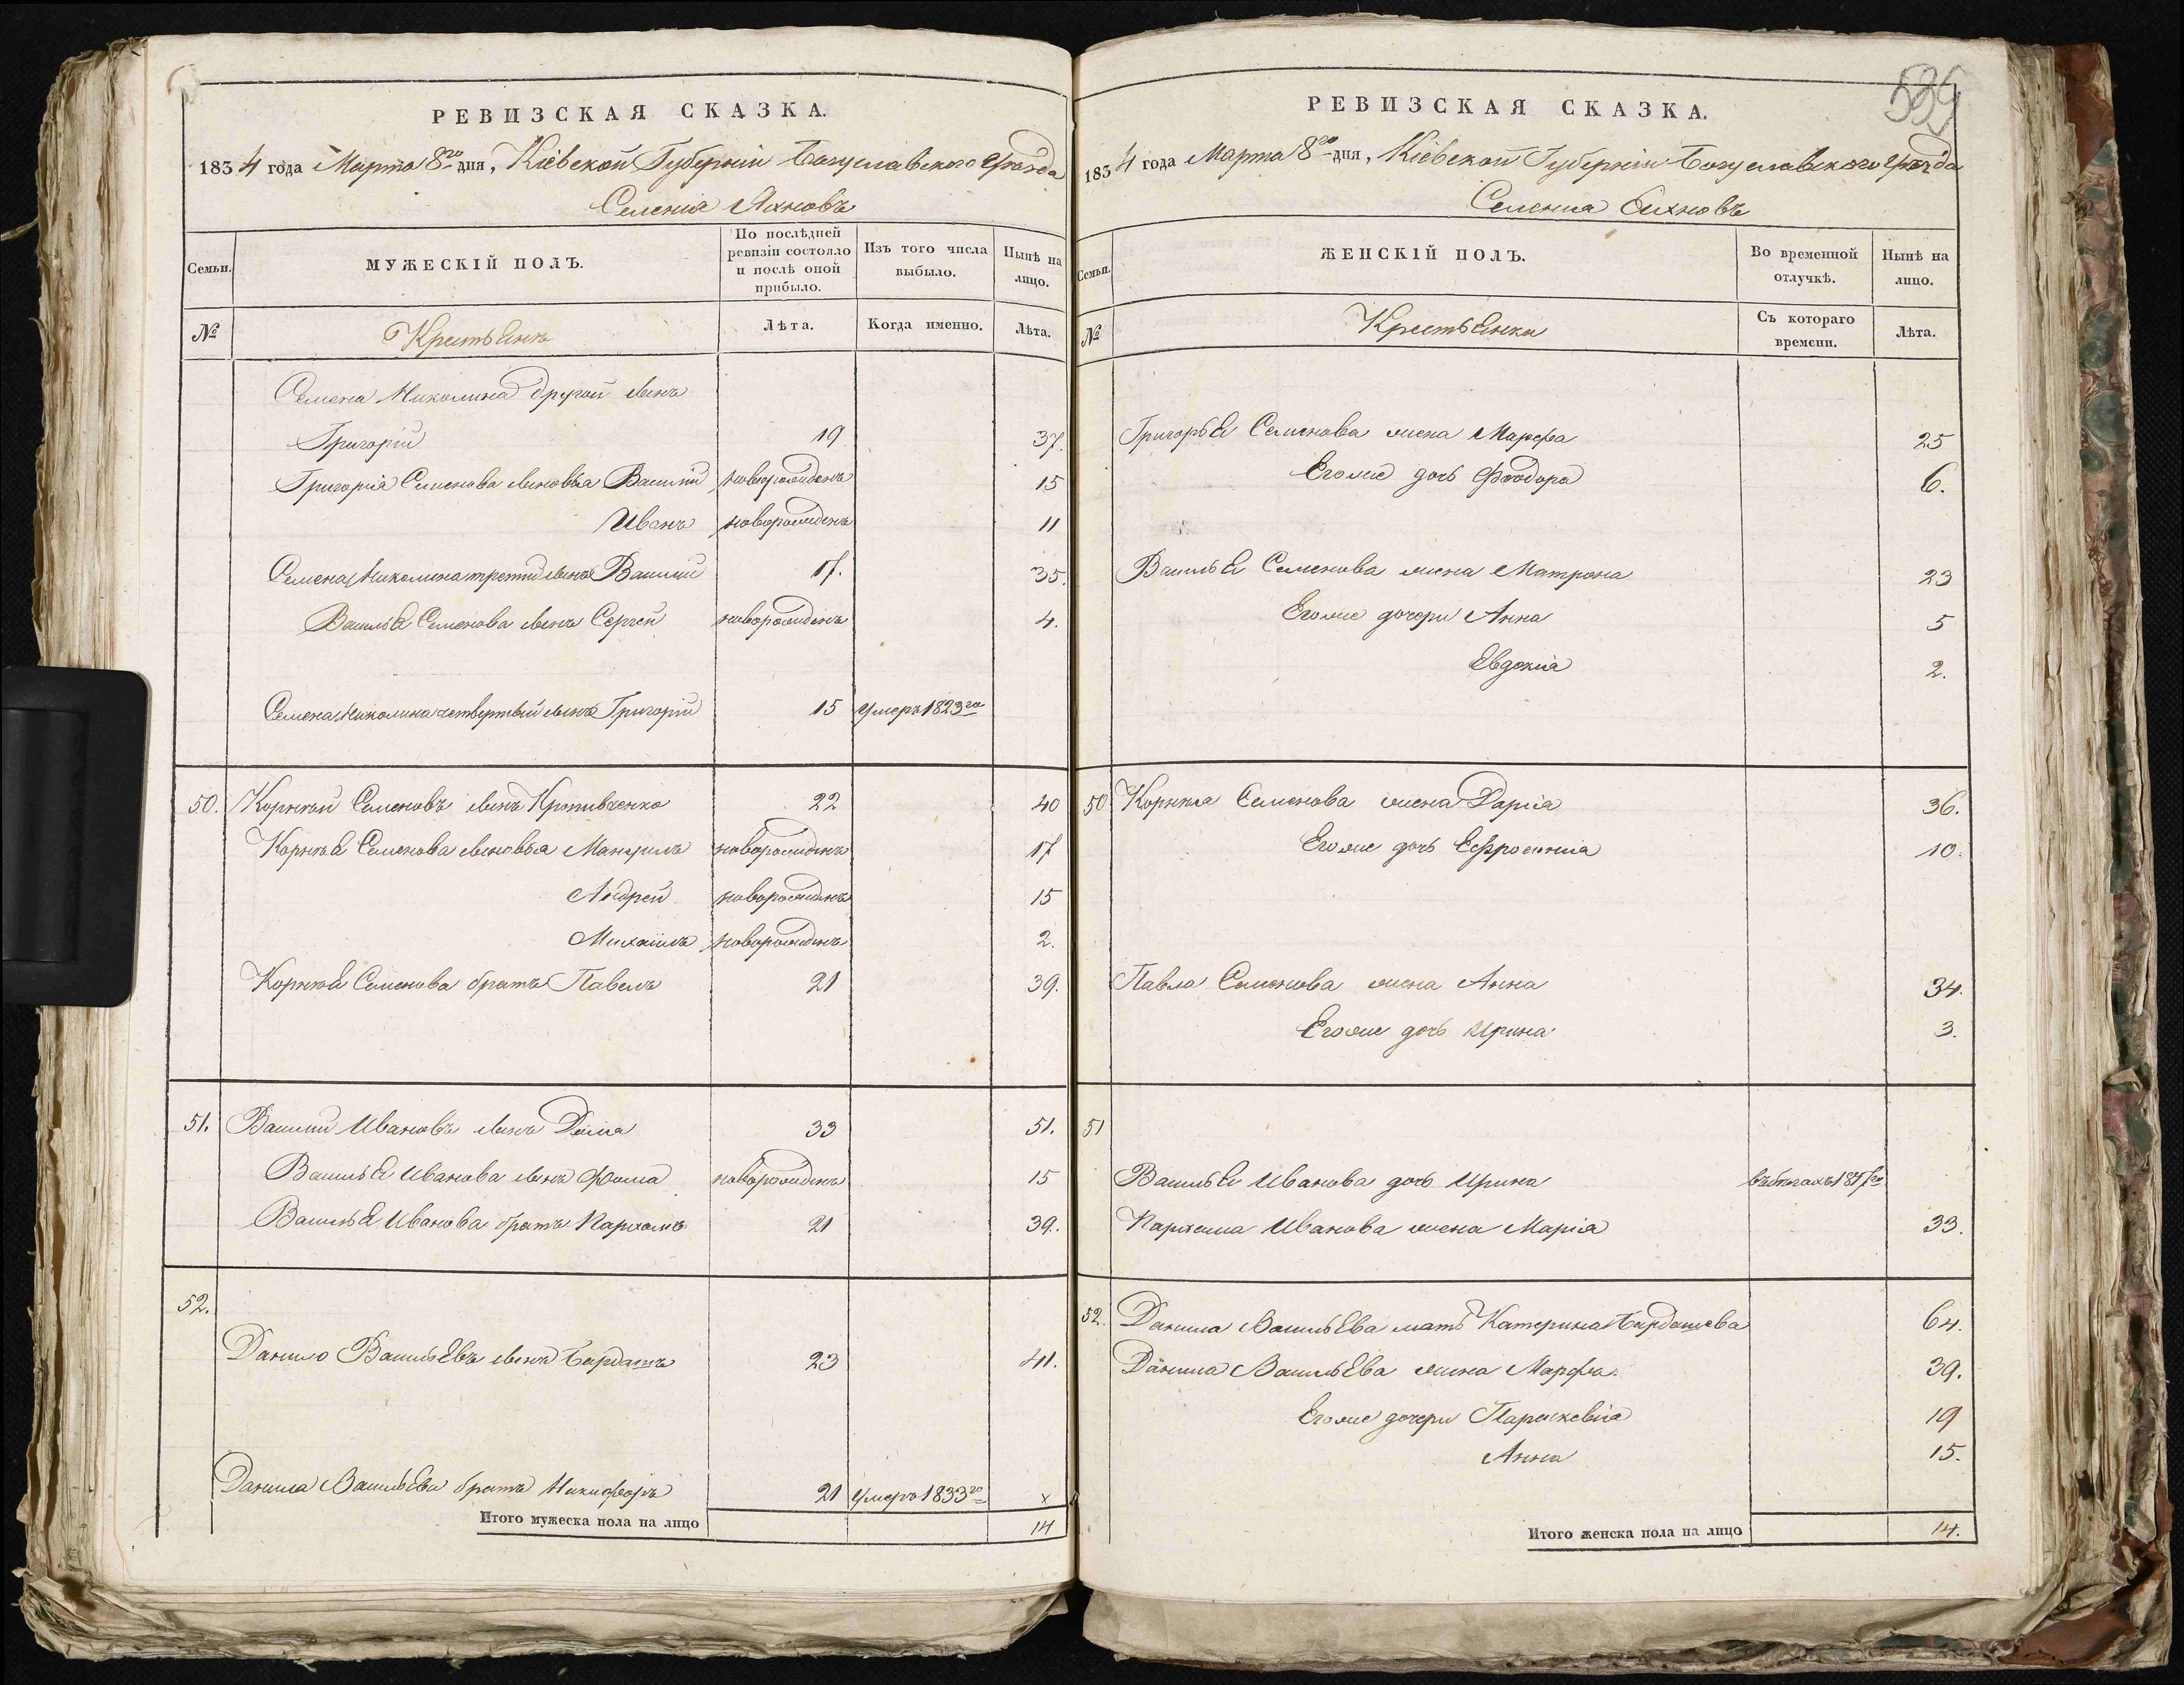 РЕВИЗСКАЯ СКАЗКА.
1834 года Марта 8го дня, Кіевской Губерніи Богуславского Уѣзда
Селенія Яхновъ
Семьи.
МУЖЕСКІЙ ПОЛЪ.
По послѣдней ревизіи состояло и послѣ оной прибыло.
Изъ того числа выбыло.
Нынѣ на лицо.
№
Крестьянъ
Лѣта.
Когда именно.
Лѣта.
Семена Николина другой сынъ
Григорій 19 37.
Григорія Семенова сыновья Василій новорожденъ 15
Иванъ новорожденъ 11
Семена Николина третій сынъ Василій 17. 35.
Василья Семенова сынъ Сергей новорожденъ 4.
Семена Николина четвертый сынъ Григорій 15 умеръ 1823го
50. Корнѣй Семеновъ сынъ 22 40
Корнѣя Семенова сыновья Мануилъ новорожденъ 17
Андрей новорожденъ 15
Михаилъ новорожденъ 2.
Корнѣя Семенова братъ Павелъ 21 39.
51. Василій Ивановъ сынъ 33 51.
Василья Иванова сынъ Фома новорожденъ 15
Василья Иванова братъ Пархомъ 21 39.
52.
Данило Васильевъ сынъ Бардашъ 23 41.
Данила Васильева братъ Никифоръ 21 умеръ 1833го х
Итого мужеска пола на лицо 14
РЕВИЗСКАЯ СКАЗКА.
1834 года Марта 8го дня, Кіевской Губерніи Богуславского Уѣзда
Селенія Яхновъ
Семьи.
ЖЕНСКІЙ ПОЛЪ.
Во временной отлучкѣ.
Нынѣ на лицо.
№
Крестьянки
Съ котораго времени.
Лѣта.
Григорья Семенова жена Марфа 25
Его же дочь Феодора 6.
Василья Семенова жена Матрона 23
Его же дочери Анна 5
Евдокія 2.
50 Корнѣя Семенова жена Дарія 36.
Его же дочь Ефросинія 10.
Павла Семенова жена Анна 34.
Его же дочь Ирина 3.
51
Василья Иванова дочь Ирина въ бѣгахъ
Пархома Иванова жена Марія 33.
52. Данила Васильева мать Катерина Бардашева 64.
Данила Васильева жена Марфа. 39.
Его же дочери Параскевія 19
Анна 15.
Итого женска пола на лицо 14.